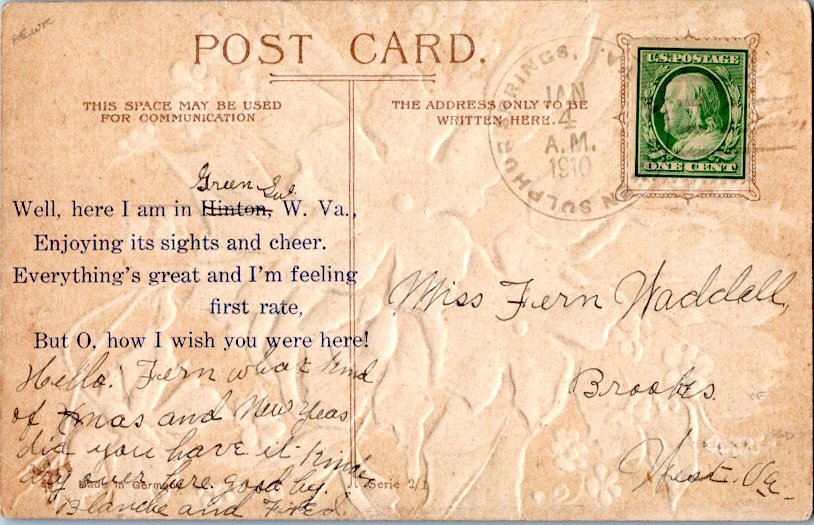 POST CARD.
THIS SPACE MAY BE USED
FOR COMMUNICATION
THE ADDRESS ONLY TO BE
WRITTEN HERE.
ON SULPHUR SPRINGS,
JAN
4
A.M.
1910
U.S. POSTAGE
ONE CENT
Green Sul.
Well, here I am in Hinton, W. Va.,
Enjoying its sights and cheer.
Everything's great and I'm feeling
first rate,
But O, how I wish you were here!
Hello. Fern what kind
of Xmas and New Yeas
did you have it kinda
dry over here good by.
Blanche and Fred.
Miss Fern Waddell,
Brooks
West. Va.
Made in Germany
Serie 2/1